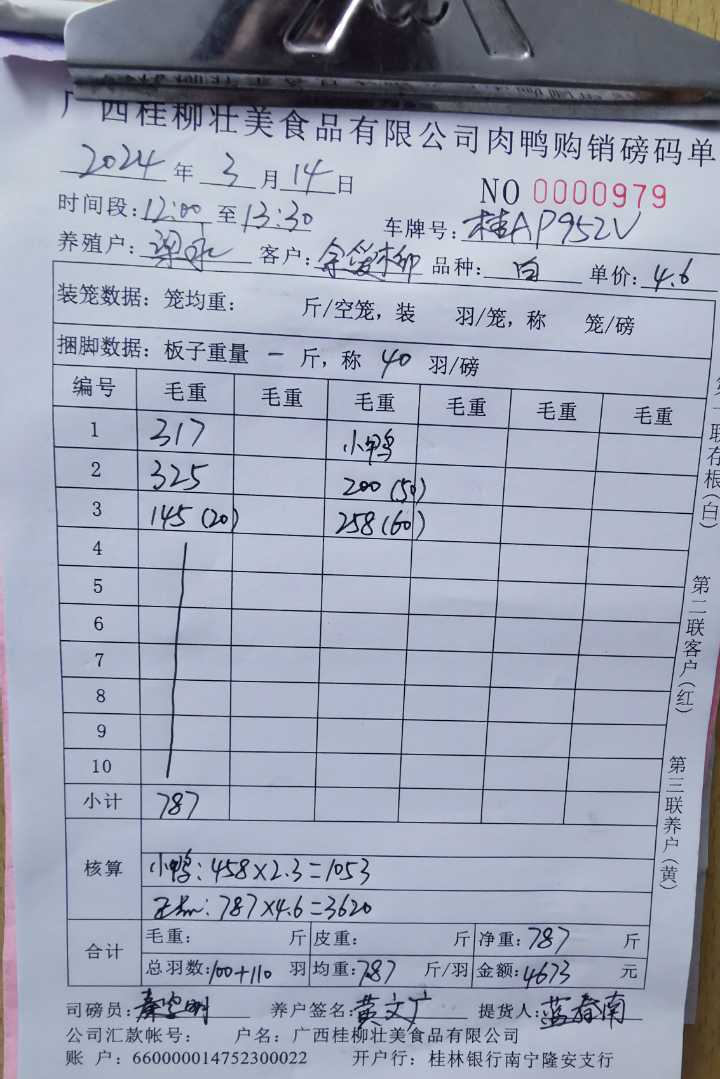 广西桂柳壮美食品有限公司肉鸭购销磅码单
2024年3月14日 NO 0000979
时间段:12:00至13:30 车牌号:桂AP952V
养殖户: 客户: 品种:白 单价:4.6
装笼数据: 笼均重: 斤/空笼, 装 羽/笼, 称 笼/磅
捆脚数据: 板子重量 一 斤, 称 40 羽/磅
编号 毛重 毛重 毛重 毛重 毛重 毛重
1 317 小鸭
2 325 200(50)
3 145(20) 258(60)
4
5
6
7
8
9
10
小计 787
核算
小鸭:458×2.3=1053
787×4.6=3620
合计
毛重: 斤 皮重: 斤 净重:787 斤
总羽数:100+110 羽 均重:787 斤/羽 金额:4673 元
司磅员: 养户签名:黄文广 提货人:蓝春南
公司汇款帐号: 户名:广西桂柳壮美食品有限公司
账 户:660000014752300022 开户行:桂林银行南宁隆安支行
联存根(白)
第二联客户(红)
第三联养户(黄)